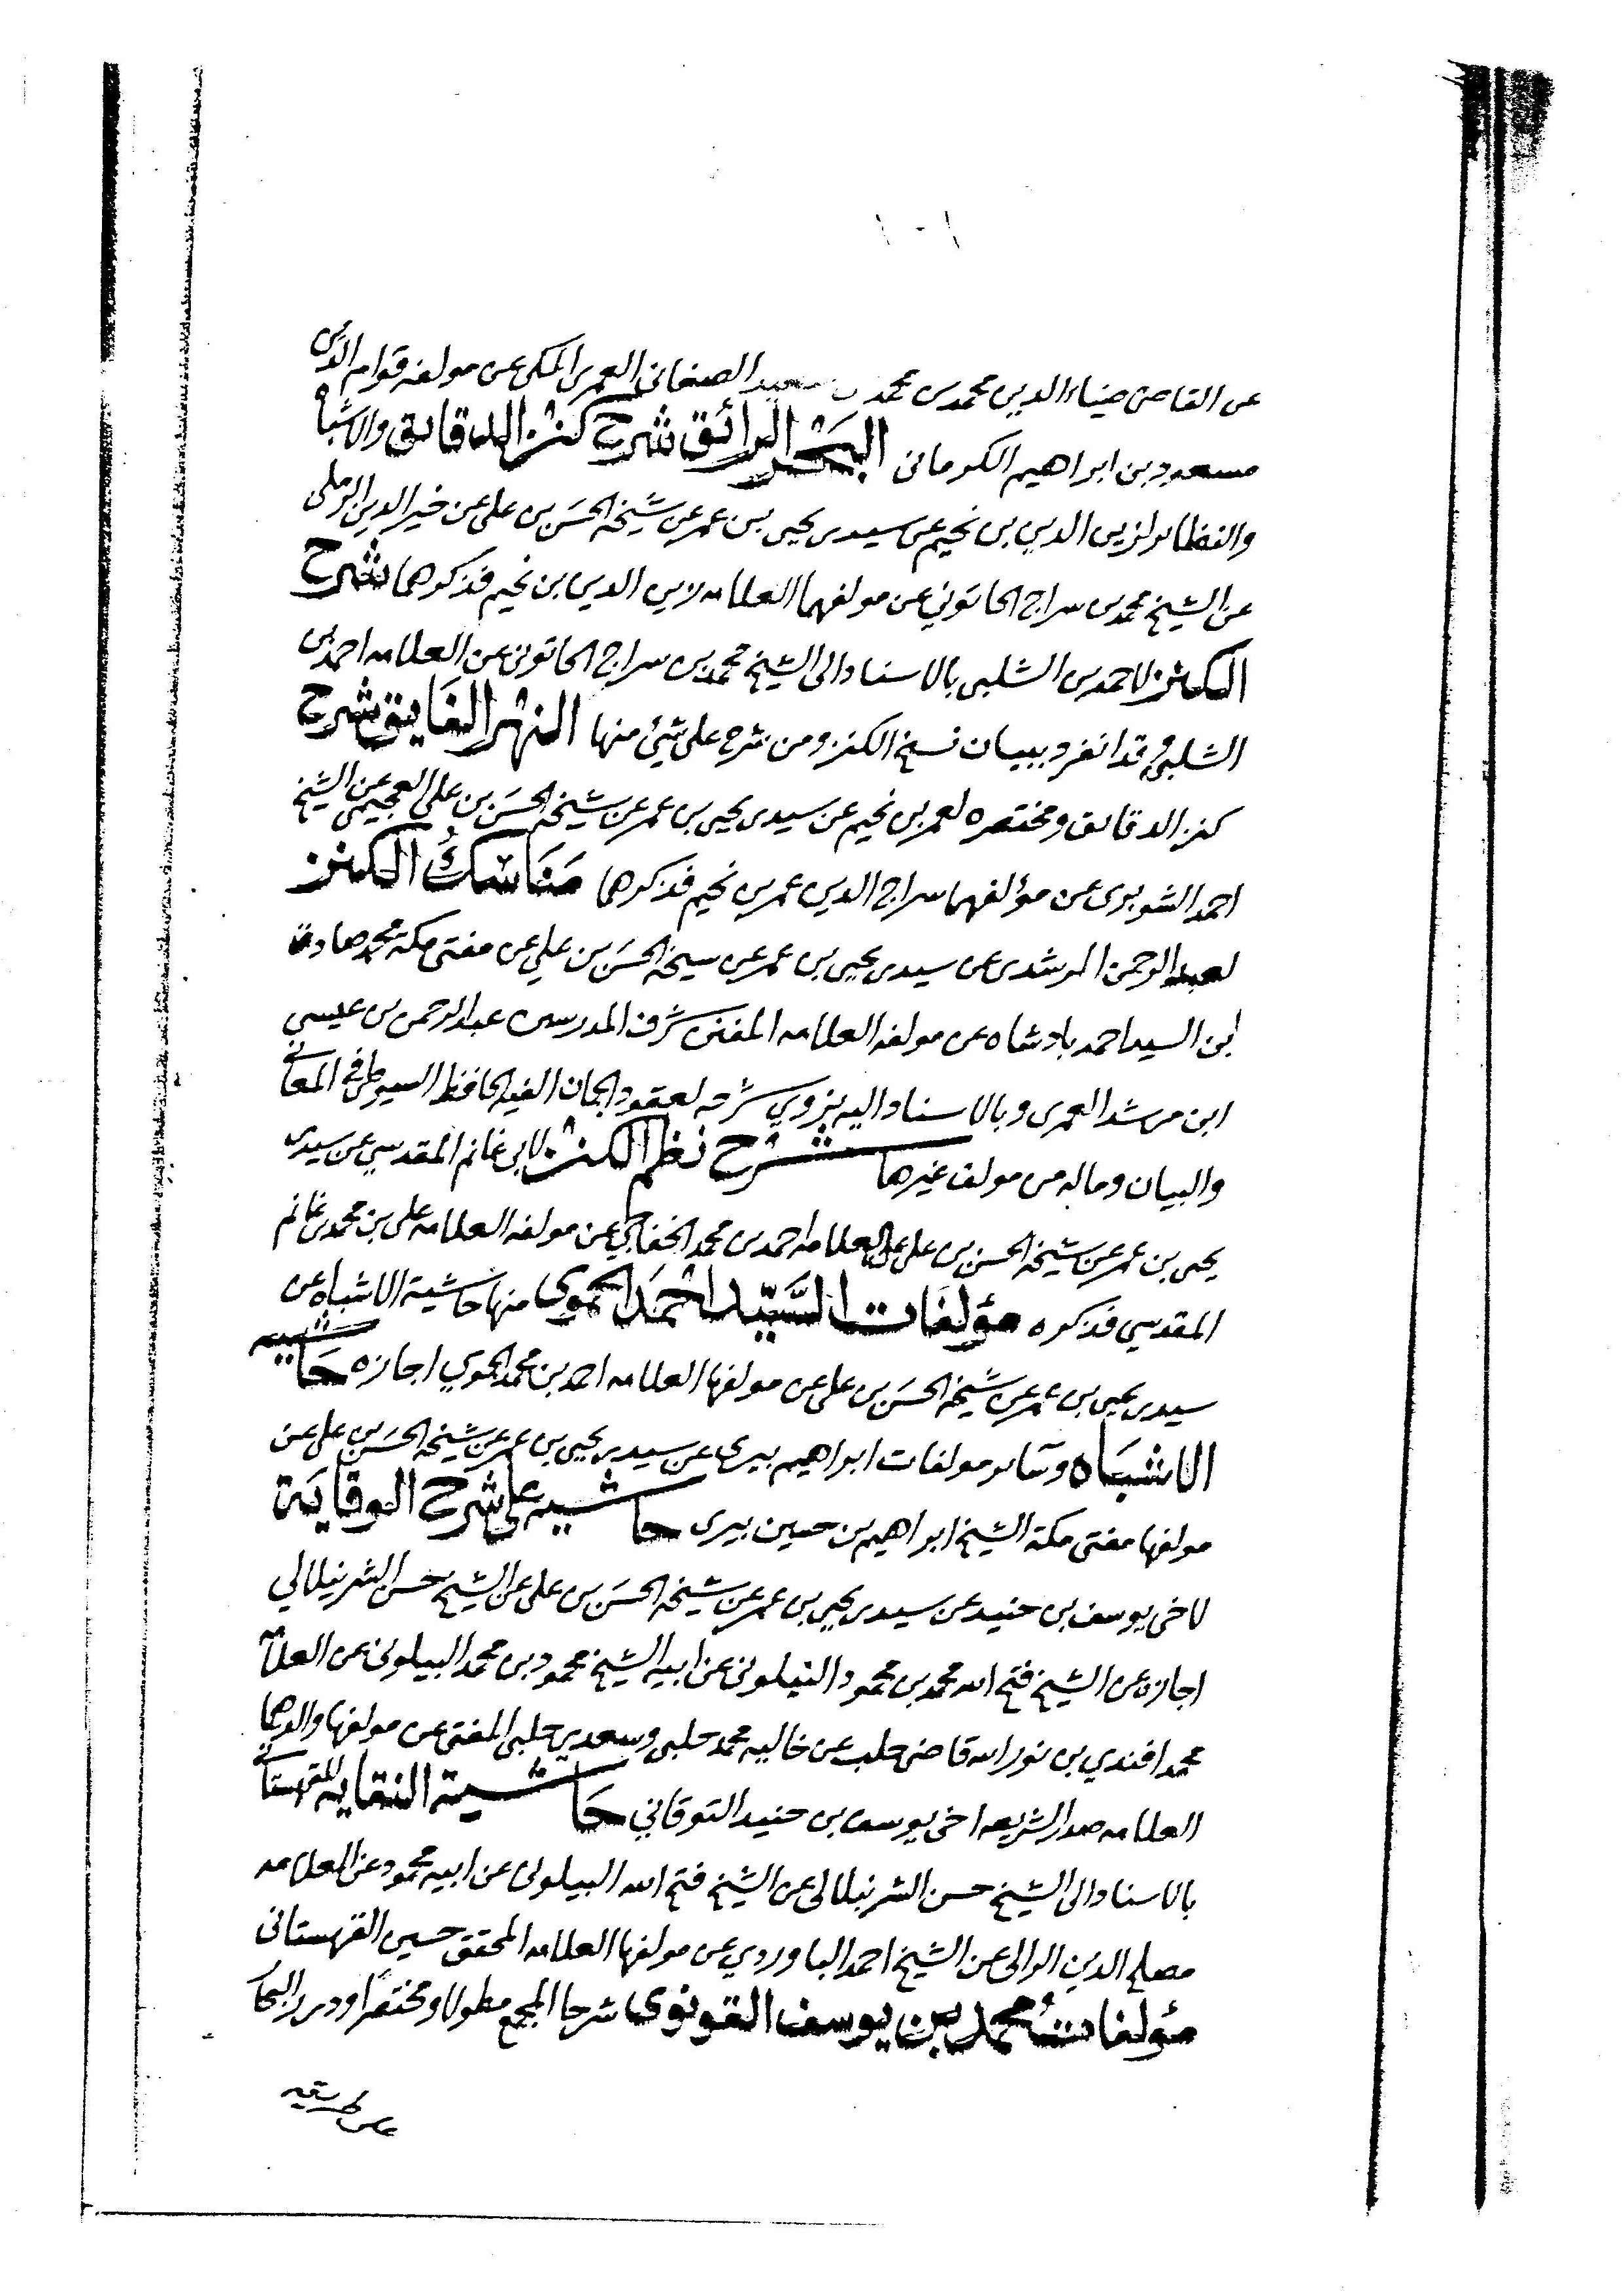 ١٠١
عن القاضى ضياء الدين محمد بن محمد بن سعيد الصغانى العمرى المكى عن مولفه قوام الدين
مسعود بن ابراهيم الكرمانى البحر الرائق شرح كنز الدقايق والاشباه
والنظاير لزين الدين بن نجيم عن سيدى يحيى بن عمر عن شيخه الحسن بن على عن خير الدين الرملى
عن الشيخ محمد بن سراج الحانوتي عن مولفهما العلامه زين الدين بن نجيم فذكرهما شرح
الكنز لاحمد بن الشلبى بالاسناد الى الشيخ محمد بن سراج الحانوتى عن العلامه احمد بن
الشلبى وقد انفرد ببيان نسخ الكنز ومن شرح على شيئ منها النهر الفايق شرح
كنز الدقايق ومختصره لعمر بن نجيم عن سيدى يحيى بن عمر عن شيخه الحسن بن على العجيمى عن الشيخ
احمد الشوبرى عن مؤلفهما سراج الدين عمر بن نجيم فذكرهما مناسك الكنز
لعبد الرحمن المرشدى عن سيدى يحيى بن عمر عن شيخه الحسن بن علي عن مفتى مكة محمد صادق
ابن السيد احمد بادشاه عن مولفه العلامه المفتى شرف المدرسين عبد الرحمن بن عيسى
ابن مرشد العمرى وبالاسناد اليه نروي شرحه لعقود الجمان الفيه الحافظ السيوطى في المعانى
والبيان وماله من مولف غيرها شرح نظم الكنز لابن غانم المقدسي عن سيدى
يحيى بن عمر عن شيخه الحسن بن على عن العلامه احمد بن محمد الخفاجي عن مولفه العلامه على بن محمد بن غانم
المقدسي فذكره مؤلفات السيد احمد الحموى منها حاشية الاشباه عن
سيدى يحيى بن عمر عن شيخه الحسن بن على عن مولفها العلامه احمد بن محمد الحموي اجازه حاشيه
الاشباه وساير مولفات ابراهيم بيرى عن سيدى يحيى بن عمر عن شيخه الحسن بن على عن
مولفها مفتى مكة الشيخ ابراهيم بن حسين بيرى حاشيه على شرح الوقاية
لاخى يوسف بن جنيد عن سيدى يحيى بن عمر عن شيخه الحسن بن على عن الشيخ حسن الشرنبلالي
اجازه عن الشيخ فتح الله محمد بن محمود البيلونى عن ابيه الشيخ محمود بن محمد البيلونى عن العلامة
محمد افندي بن نور الله قاضى حلب عن خاليه محمد جلبى وسعدى جلبى المفتى عن مولفها والدهما
العلامه صدر الشريعه اخى يوسف بن جنيد التوقاني حاشية النقايه للقهستانى
بالاسناد الى الشيخ حسن الشرنبلالى عن الشيخ فتح الله البيلونى عن ابيه محمود عن العلامه
مصلح الدين اللارى عن الشيخ احمد الباوردي عن مولفها العلامه المحقق حسين القهستانى
مؤلفات محمد بن يوسف القونوى شرحا المجمع مطولا ومختصرا ودرر البحار